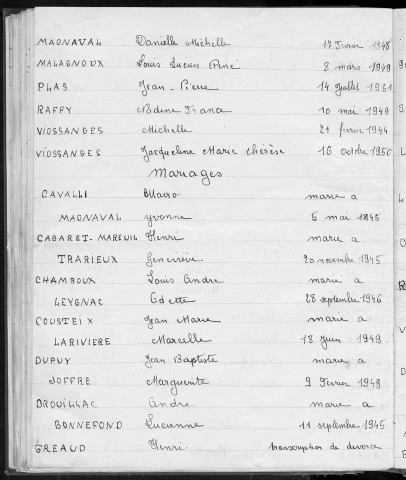 MAGNAVAL Danielle Michelle 17 Fevrier 1948
MALAGNOUX Louis Lucien René 8 mars 1949
PLAS Jean-Pierre 14 Juillet 1941
RAFFY Nadine France 10 mai 1949
VIOSSANGES Michelle 21 fevrier 1944
VIOSSANGES Jacqueline Marie Thérèse 16 octobre 1950
Mariages
CAVALLI Mario marie a
MAGNAVAL yvonne 5 mai 1945
CABARET-MAREUIL Henri marie a
TRARIEUX Genevieve 20 novembre 1945
CHAMBOUX Louis Andre marié a
LEYGNAC Odette 28 septembre 1946
COUSTEIX Jean Marie marie a
LARIVIERE Marcelle 18 Juin 1949
DUPUY Jean Baptiste marie a
JOFFRE Marguerite 9 Fevrier 1948
BROUILLAC Andre marie a
BONNEFOND Lucienne 11 septembre 1945
GREAUD Henri transcription de divorce